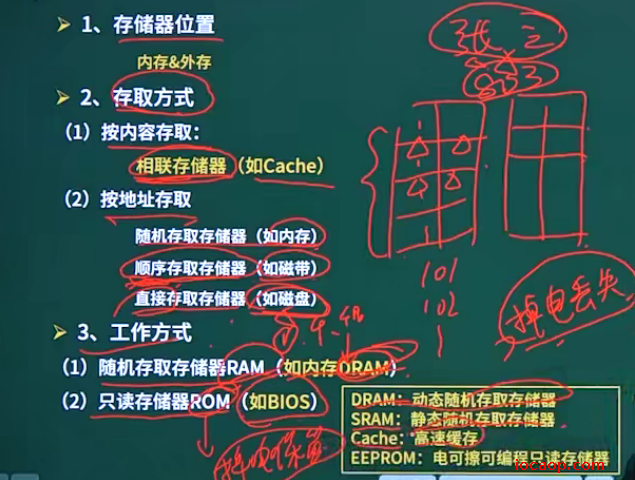 1、存储器位置
内存&外存
2、存取方式
（1）按内容存取：
相联存储器（如Cache）
（2）按地址存取
随机存取存储器（如内存）
顺序存取存储器（如磁带）
直接存取存储器（如磁盘）
3、工作方式
（1）随机存取存储器RAM（如内存DRAM）
（2）只读存储器ROM（如BIOS）
DRAM：动态随机存取存储器
SRAM：静态随机存取存储器
Cache：高速缓存
EEPROM：电可擦可编程只读存储器
张三
833
101
102
掉电丢失